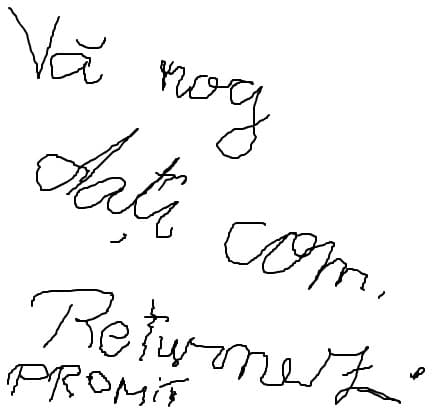 Vă rog
dați com.
Returnez.
PROMIT